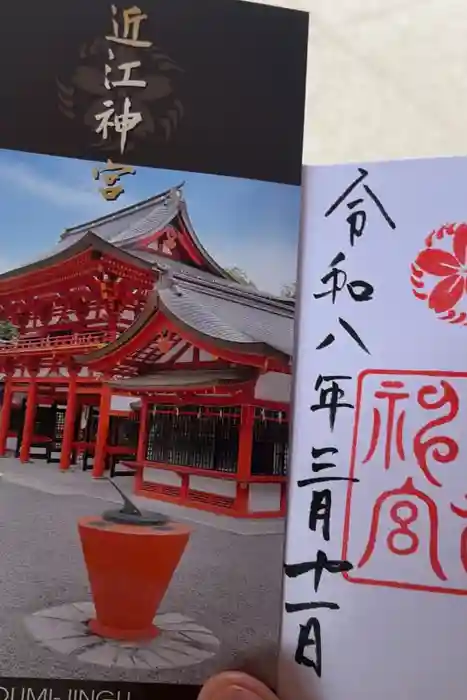 近江神宮
OUMI-JINGU
令和八年三月十一日